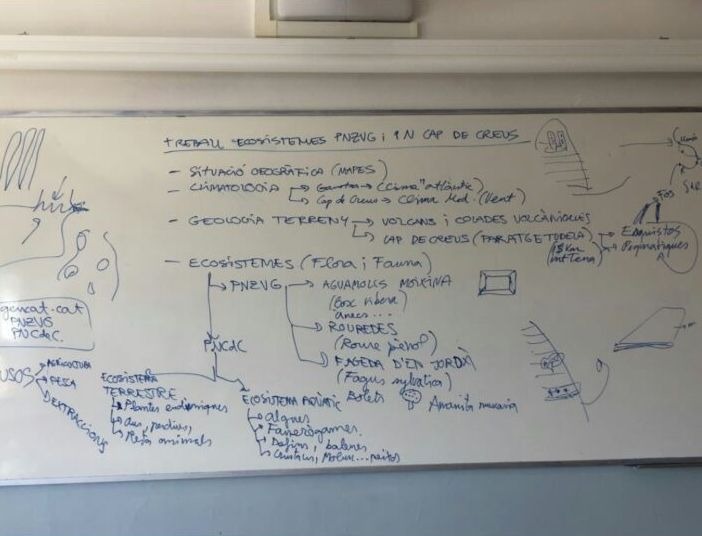 TREBALL ECOSISTEMES PNZVG i PN CAP DE CREUS
- SITUACIÓ GEOGRÀFICA (MAPES)
- CLIMATOLOGIA → Garrotxa → Clima "atlàntic"
→ Cap de Creus → Clima Med. (Vent)
- GEOLOGIA TERRENY → VOLCANS i COLADES VOLCÀNIQUES
→ CAP DE CREUS (PARATGE TUDELA) → Esquistos
→ Pegmatiques
- ECOSISTEMES (Flora i Fauna)
→ PNZVG → AIGUAMOLLS MOIXINA
(Bosc ribera)
ànecs...
→ ROUREDES
(Roure pènol)
→ FAGEDA D'EN JORDÀ
(Fagus sylvatica)
Bolets Amanita muscaria
PNCdC
ECOSISTEMA
TERRESTRE
→ Plantes endèmiques
→ Aus, perdius,
→ Resta animals
ECOSISTEMA AQUÀTIC
→ Algues
→ Fanerògames
→ Dofins, balenes
→ Crustacis, Molusc... peixos
gencat.cat
PNZVG
PNCdC
USOS → AGRICULTURA
→ PESCA
→ EXTRACCIONS